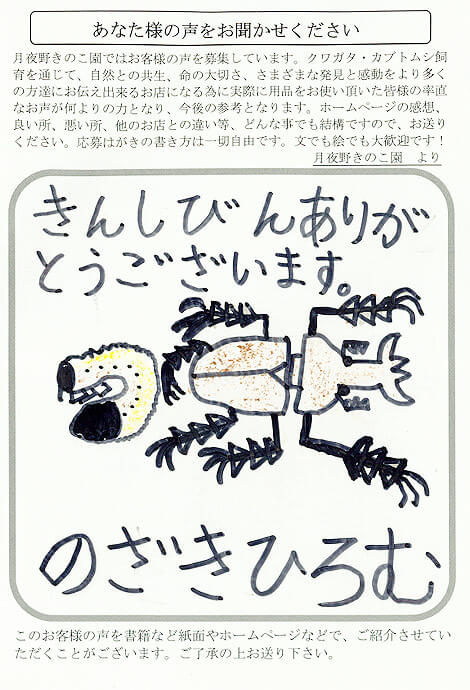 あなた様の声をお聞かせください
月夜野きのこ園ではお客様の声を募集しています。クワガタ・カブトムシ飼
育を通じて、自然との共生、命の大切さ、さまざまな発見と感動をより多く
の方達にお伝え出来るお店になる為に実際に用品をお使い頂いた皆様の率直
なお声が何よりの力となり、今後の参考となります。ホームページの感想、
良い所、悪い所、他のお店との違い等、どんな事でも結構ですので、お送り
ください。応募はがきの書き方は一切自由です。文でも絵でも大歓迎です！
月夜野きのこ園　より
きんしびんありが
とうございます。
のざきひろむ
このお客様の声を書籍など紙面やホームページなどで、ご紹介させてい
ただくことがございます。ご了承の上お送り下さい。